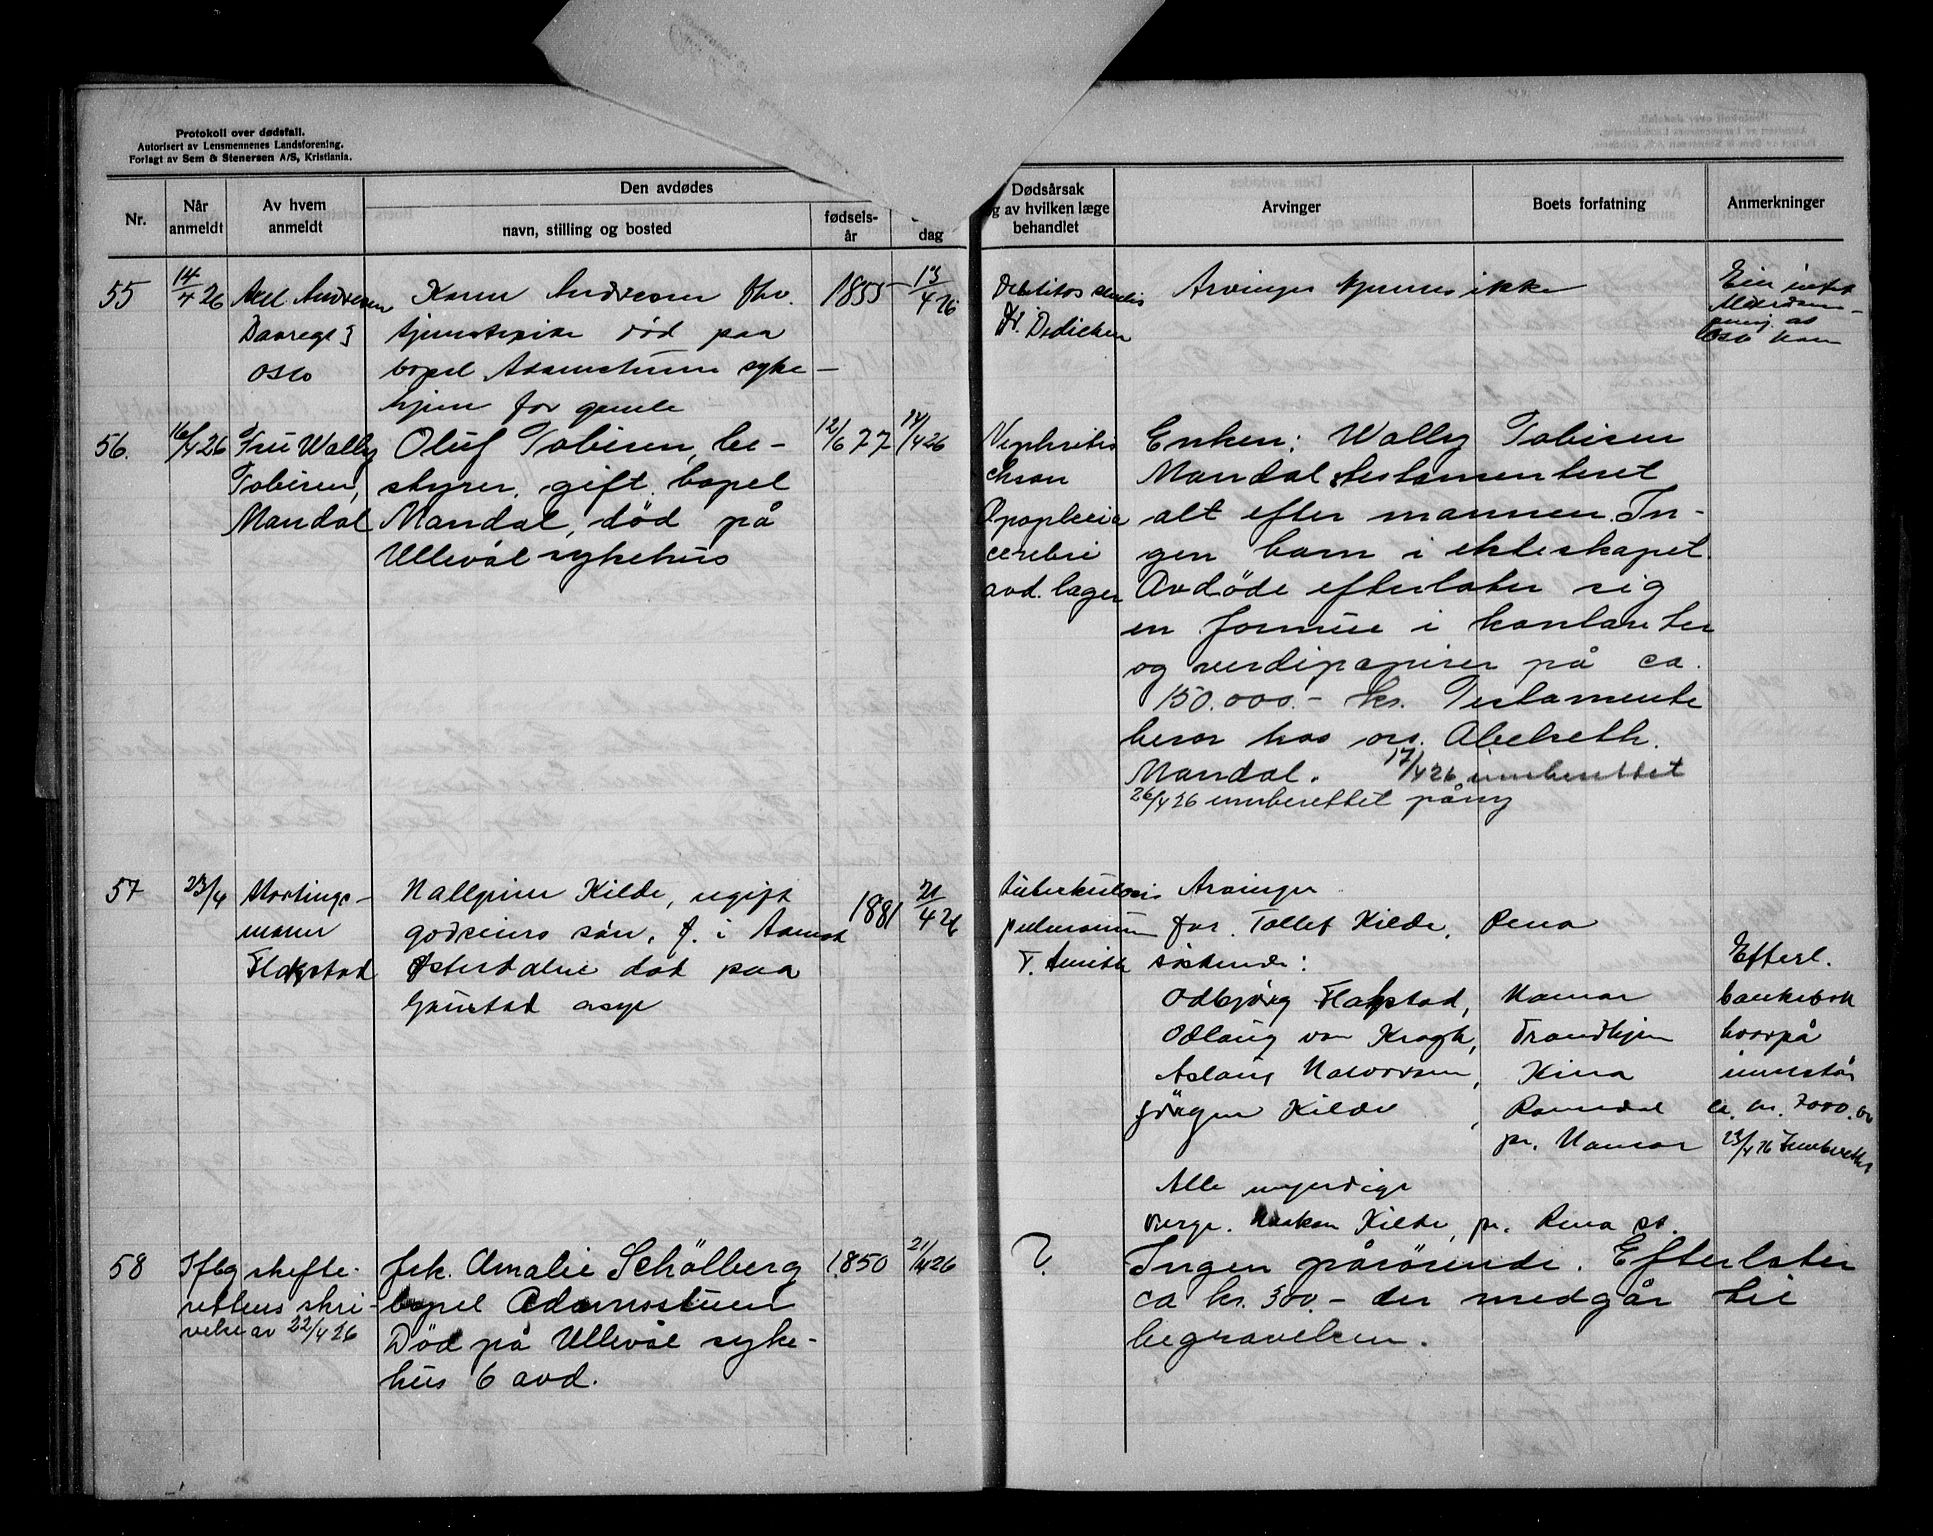 Protokoll over dødsfall.
Autorisert av Lensmennenes Landsforening.
Forlagt av Sem & Stenersen A/S, Kristiania.
Nr.
Når anmeldt
Av hvem anmeldt
Den avdødes
navn, stilling og bosted
fødsels-år
dag
Dødsårsak
og av hvilken læge
behandlet
Arvinger
Boets forfatning
Anmerkninger
55
14/4 26
Andresen
Oslo
Karen Andresen fhv.
tjenestepike død paa
bopel Adamstuen syke-
hjem for gamle
1855
13/4 26
Dedichen
Arvinger kjennes ikke
Eier intet
56.
16/4 26
Fru Wally
Tobisen,
Mandal
Oluf Tobisen, be-
styrer, gift, bopel
Mandal, død på
Ullevål sykehus
12/6 77
14/4 26
Nephritis
chron
Apoplexia
cerebri
avd. læger
Enken: Wally Tobisen
Mandal testamenteret
alt efter mannen. In-
gen barn i ekteskapet.
Avdøde efterlater sig
en formue i kontanter
og verdipapirer på ca.
150.000.- kr. Testamente
beror hos ors. Abelseth.
Mandal. 17/4 26 innberettet
26/4 26 innberettet påny
57
23/4
Stortings-
mann
Flakstad
Hallgrim Kilde, ugift
godseiers søn, f. i Aamot
Østerdalen død paa
Gaustad asyl
1881
21/4 26
tuberkulosis
pulmonum
Arvinger
far. Tollef Kilde, Rena
søskende:
Odbjørg Flakstad, Hamar
Odlaug von Krogh, Trondhjem
Aslaug Halvorsen, Kina
Jørgen Kilde, Romedal
pr. Hamar
Alle myndige
Verge. Haakon Kilde, pr. Rena st.
Efterl.
bankebok
hvorpå
innestår
ca. kr. 7000.00
23/4 26 Innberettet
58
Iflg skifte-
rettens skri-
velse av 22/4 26
frk. Amalie Schölberg
bopel Adamstuen
Død på Ullevål syke-
hus 6 avd.
1850
21/4 26
?
Ingen pårørende. Efterlater
ca kr. 300.- der medgår til
begravelsen.